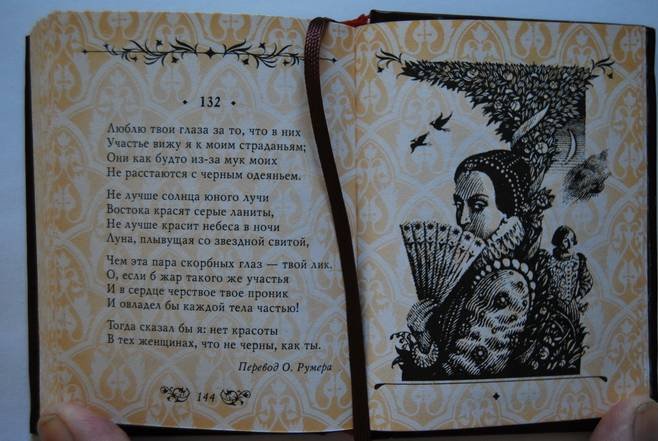 132
Люблю твои глаза за то, что в них
Участье вижу я к моим страданьям;
Они как будто из-за мук моих
Не расстаются с черным одеяньем.
Не лучше солнца юного лучи
Востока красят серые ланиты,
Не лучше красит небеса в ночи
Луна, плывущая со звездной свитой,
Чем эта пара скорбных глаз — твой лик.
О, если б жар такого же участья
И в сердце черствое твое проник
И овладел бы каждой тела частью!
Тогда сказал бы я: нет красоты
В тех женщинах, что не черны, как ты.
Перевод О. Румера
144